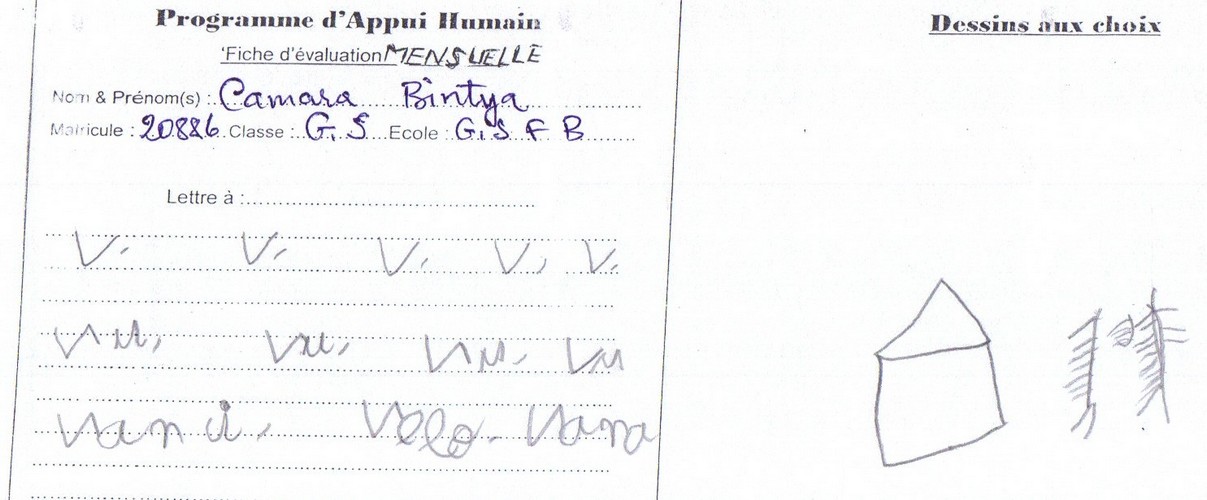 Programme d'Appui Humain
'Fiche d'évaluation MENSUELLE
Nom & Prénom(s) : Camara Bintya
Matricule : 20886 Classe : G.S Ecole : G.S F B
Lettre à :
V. V. V. V, V.
Vu, Vu, Vu. Vu
Velo.
Dessins aux choix